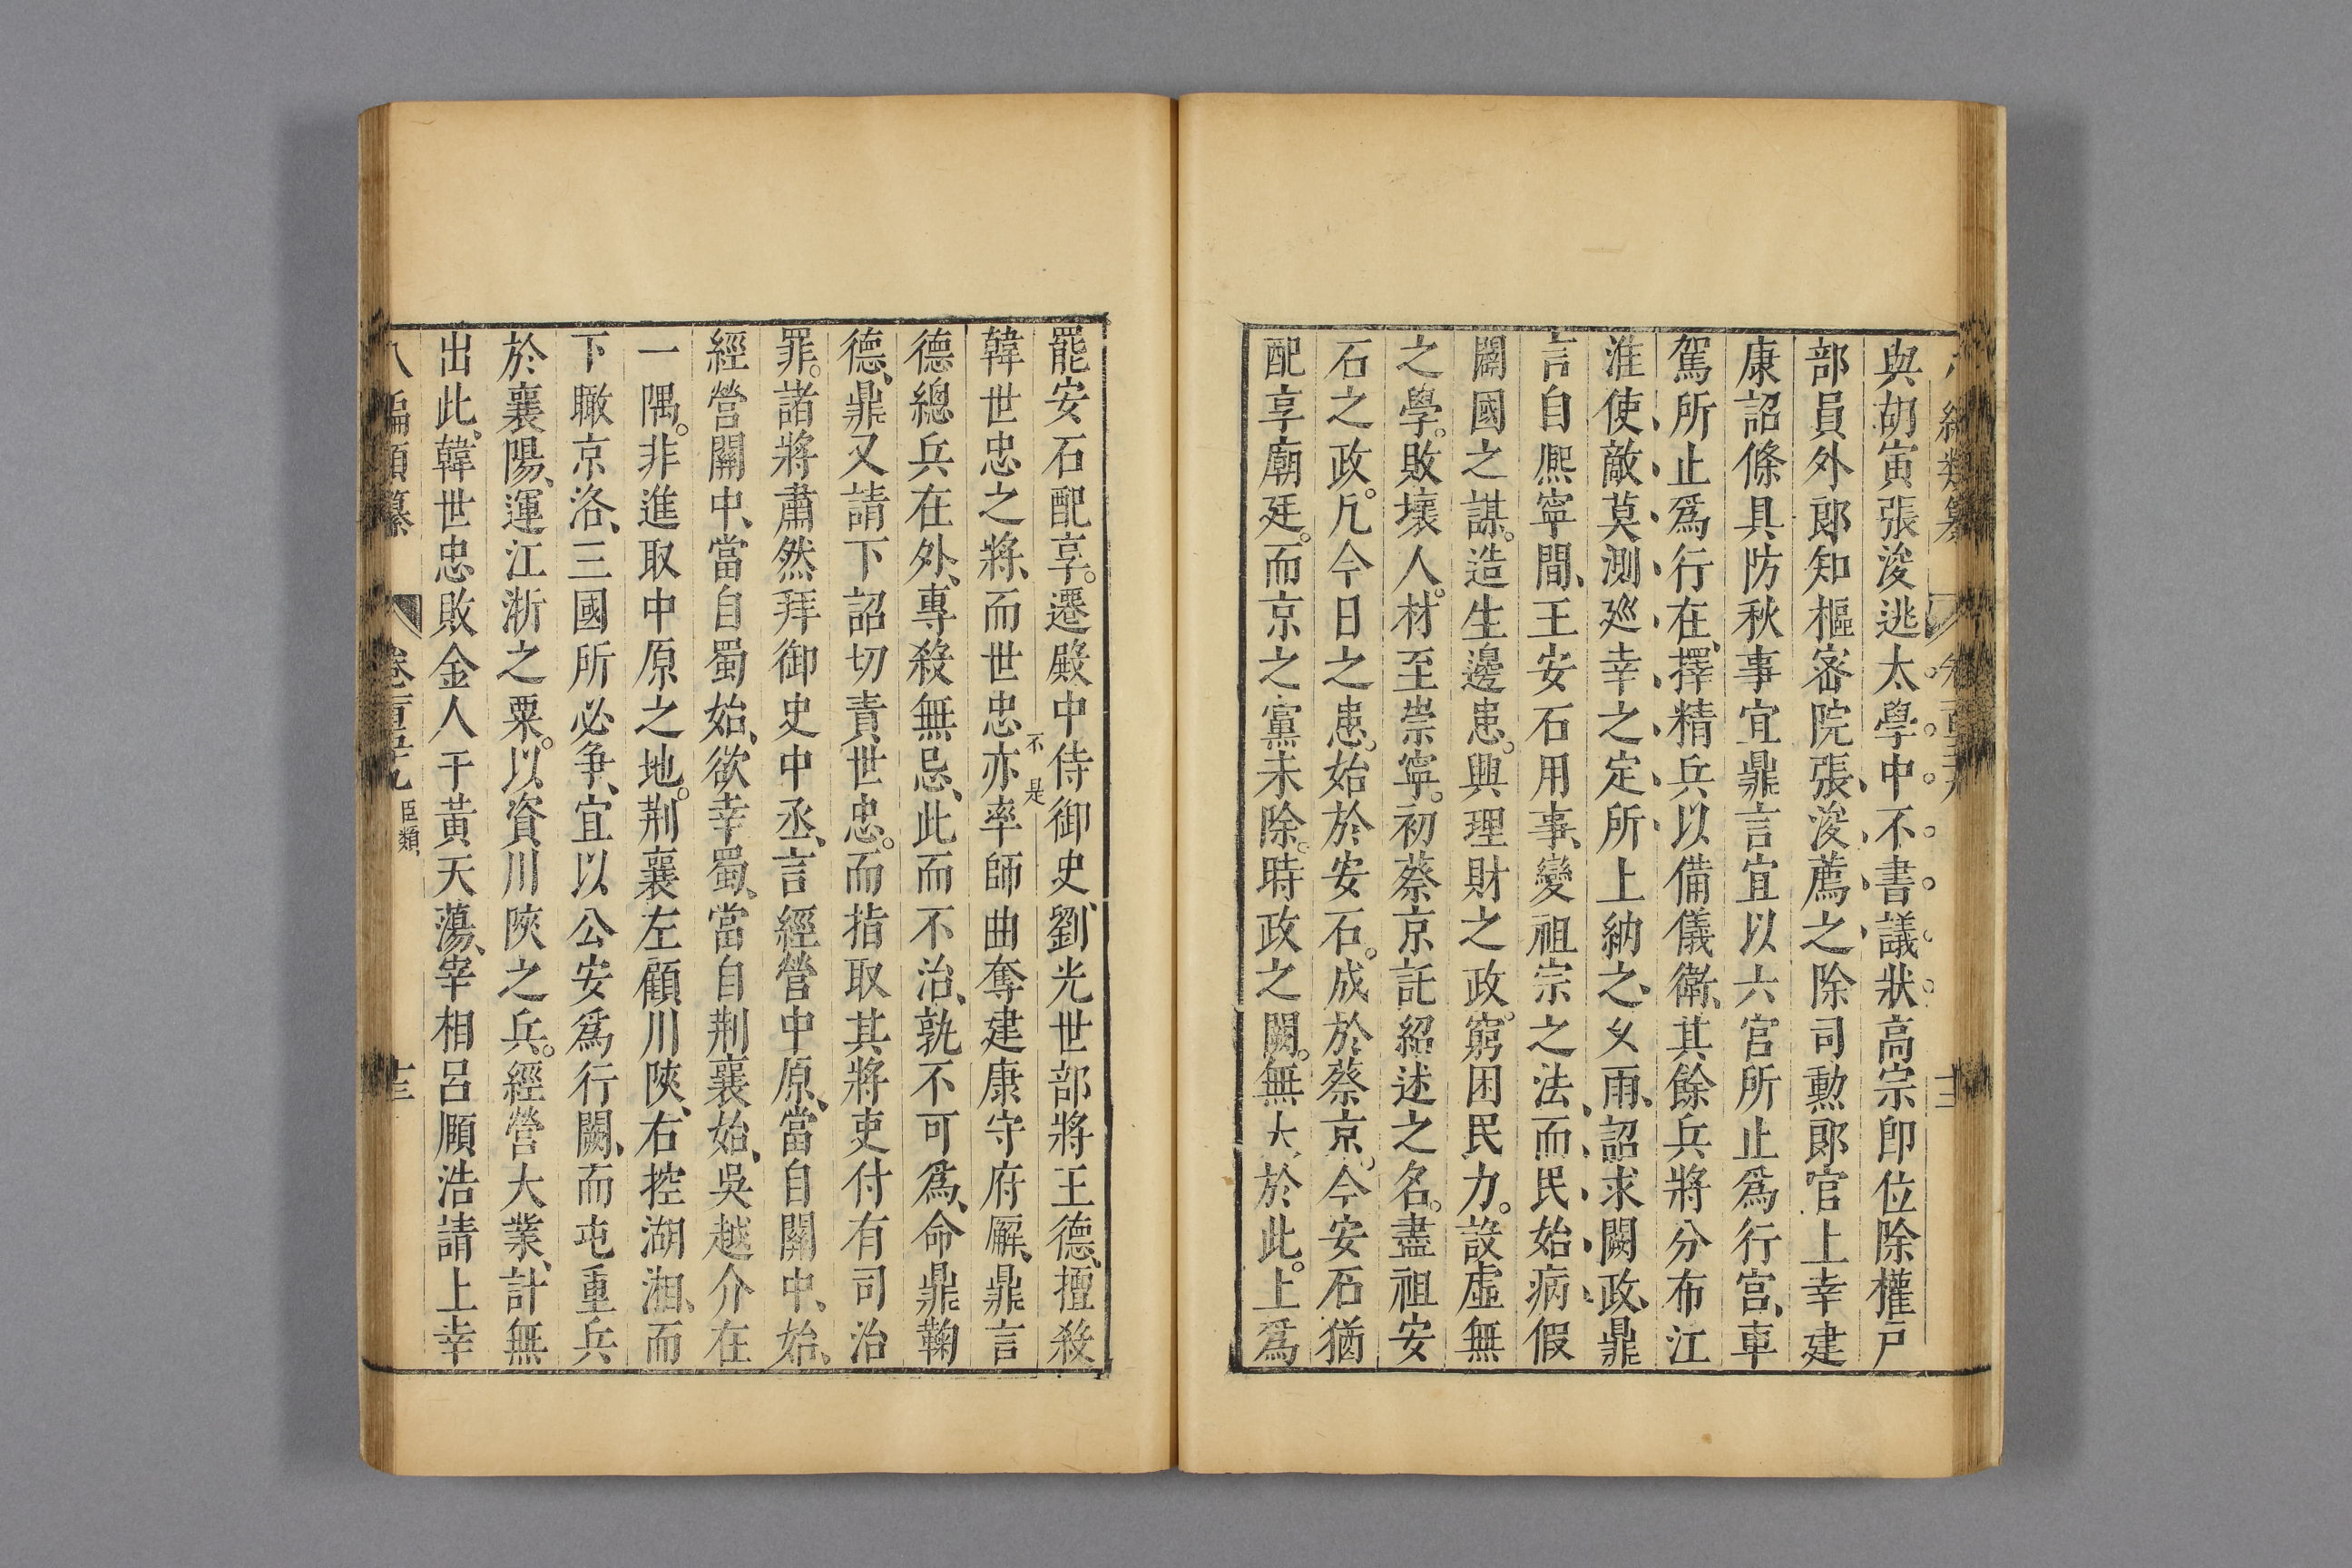 與胡寅張浚逃太學中不書議狀高宗卽位除權戸
部員外郎知樞密院張浚薦之除司勳郎官上幸建
康詔條具防秋事宜鼎言宜以六宫所止爲行宫車
駕所止爲行在擇精兵以備儀衛其餘兵將分布江
淮使敵莫測廵幸之定所上納之乆雨詔求闕政鼎
言自熈寧間王安石用事變祖宗之法而民始病假
闢國之謀造生邊患興理財之政窮困民力設虛無
之學敗壞人材至崇寧初蔡京託紹述之名盡祖安
石之政凡今日之患始於安石成於蔡京今安石猶
配享廟廷而京之黨未除時政之闕無大於此上爲
罷安石配享遷殿中侍御史劉光世部將王德擅殺
韓世忠之將而世忠亦率師曲奪建康守府廨鼎言
不是
德總兵在外專殺無忌此而不治孰不可爲命鼎鞫
德鼎又請下詔切責世忠而指取其將吏付有司治
罪諸將肅然拜御史中丞言經營中原當自關中始
經營關中當自蜀始欲幸蜀當自荆襄始吳越介在
一隅非進取中原之地荆襄左顧川陜右控湖湘而
下瞰京洛三國所必争宜以公安爲行闕而屯重兵
於襄陽運江浙之粟以資川陜之兵經營大業計無
出此韓世忠敗金人于黃天蕩宰相呂頤浩請上幸
八編類纂 卷百五九 臣類 十三